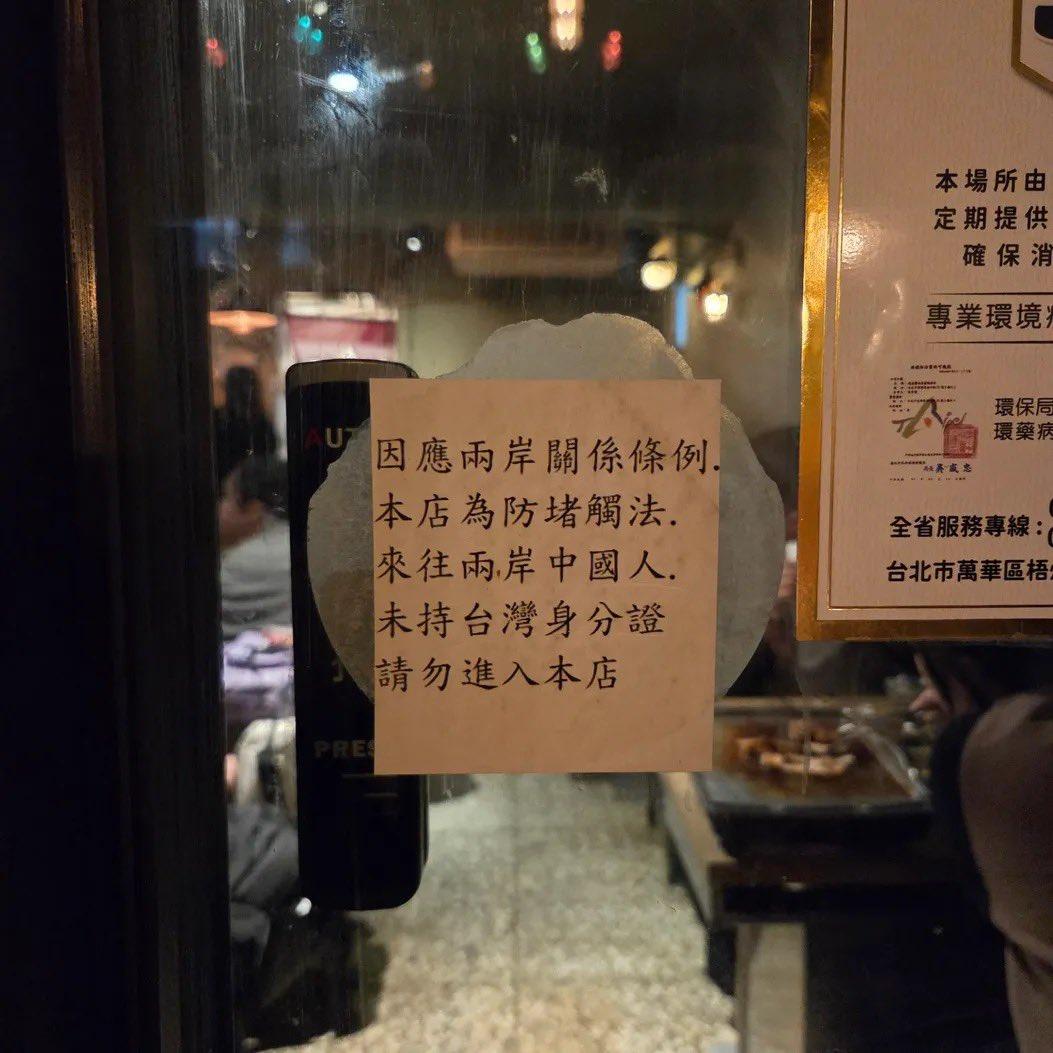 因應兩岸關係條例.
本店為防堵觸法.
來往兩岸中國人.
未持台灣身分證
請勿進入本店
AUT
PRES
本場所由
定期提供
確保消
專業環境
環保局
環藥病
局長 吳盛忠
全省服務專線:
台北市萬華區梧